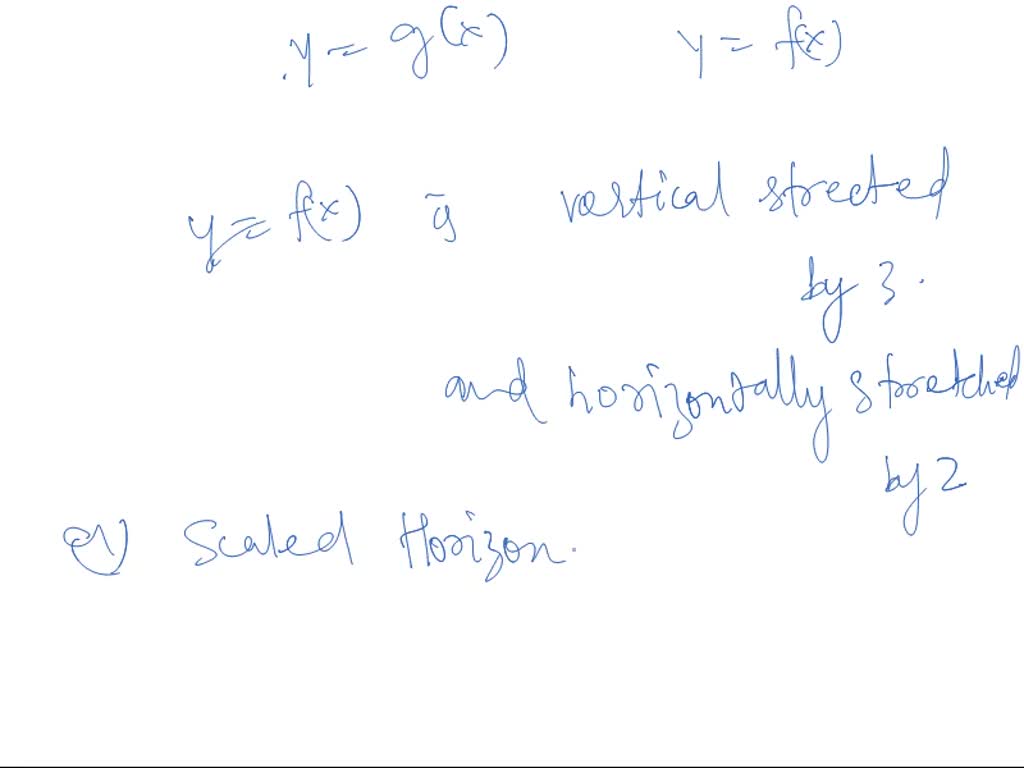 y = g(x) y = f(x)
y = f(x) is vertical strected
by 3.
and horizontally stretched
by 2
Scaled Horizon.